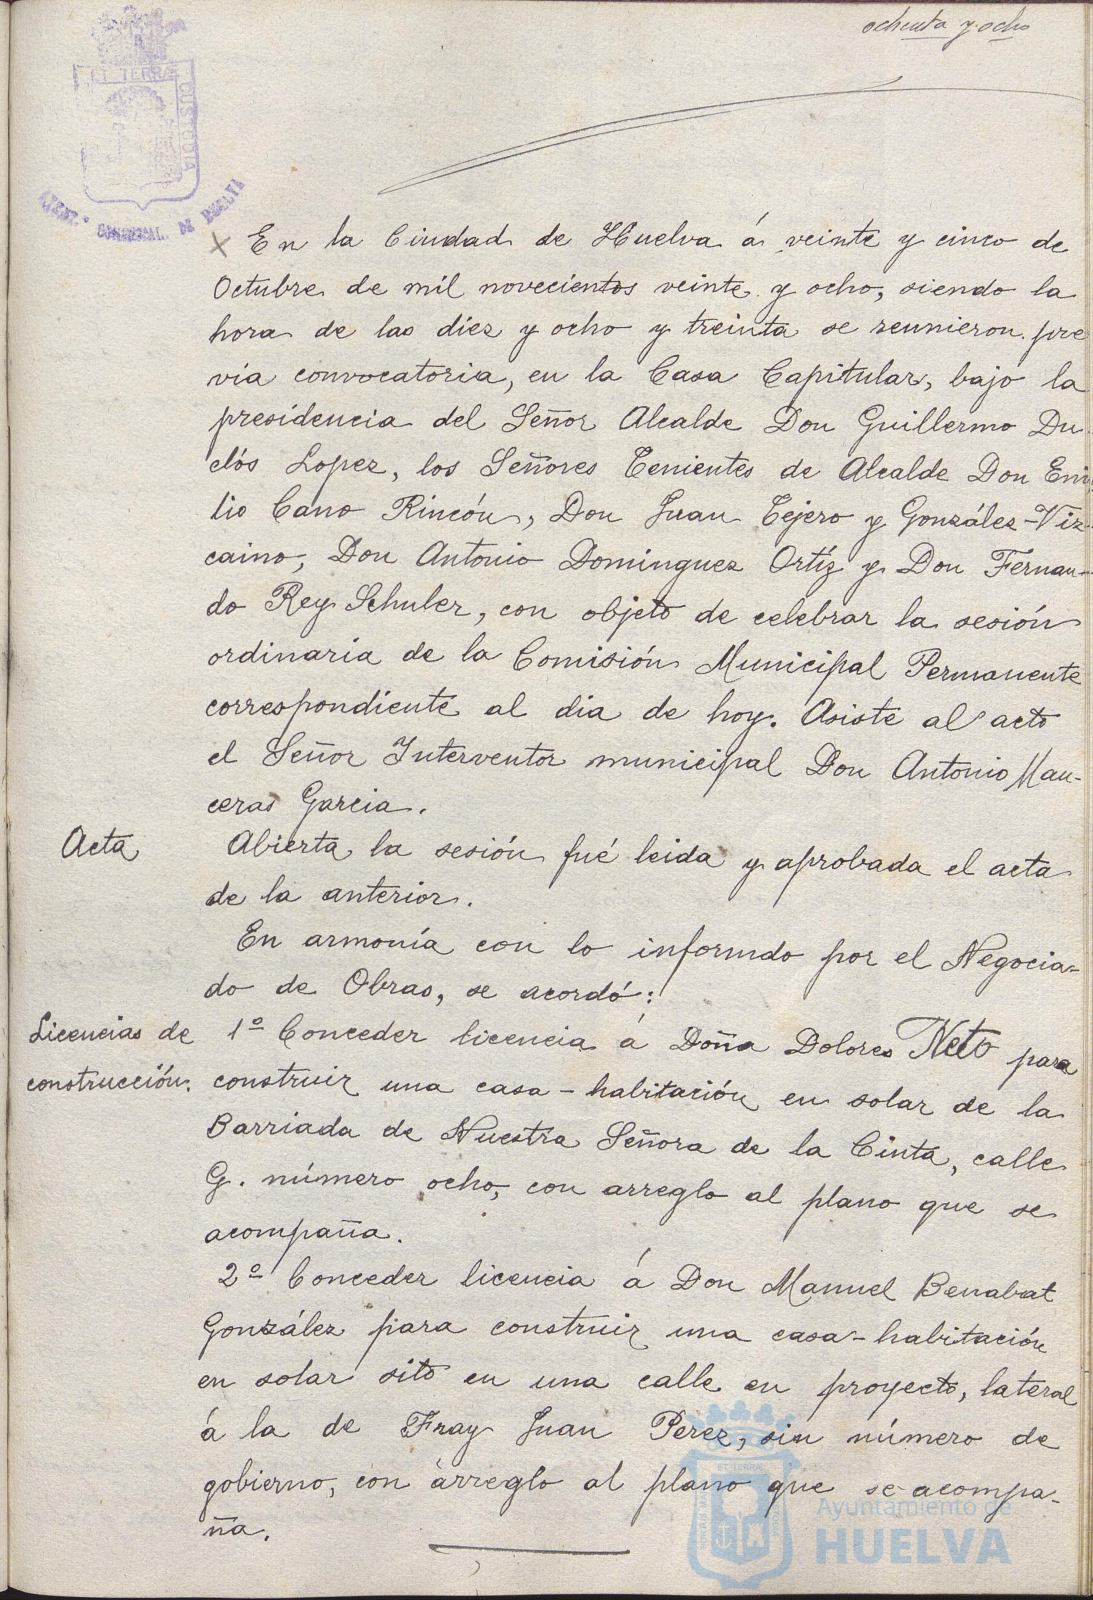 ochenta y ocho
ET TERRÆ
CUSTODIA
AYUNT.º CONSTNAL. DE HUELVA
En la Ciudad de Huelva á veinte y cinco de
Octubre de mil novecientos veinte y ocho, siendo la
hora de las diez y ocho y treinta se reunieron pre
via convocatoria, en la Casa Capitular, bajo la
presidencia del Señor Alcalde Don Guillermo Du-
clós Lopez, los Señores Tenientes de Alcalde Don Emi
lio Cano Rincón, Don Juan Tejero y González-Viz-
caino, Don Antonio Dominguez Ortíz y Don Fernan-
do Rey Schuler, con objeto de celebrar la sesión
ordinaria de la Comisión Municipal Permanente
correspondiente al dia de hoy. Asiste al acto
el Señor Interventor municipal Don Antonio Man-
ceras Garcia.
Acta
Abierta la sesión fué leida y aprobada el acta
de la anterior.
En armonía con lo informdo por el Negocia-
do de Obras, se acordó:
Licencias de
construcción.
1º Conceder licencia á Doña Dolores Neto para
construir una casa-habitación en solar de la
Barriada de Nuestra Señora de la Cinta, calle
G. número ocho, con arreglo al plano que se
acompaña.
2º Conceder licencia á Don Manuel Benabat
González para construir una casa-habitación
en solar sito en una calle en proyecto, lateral
á la de Fray Juan Perez, sin número de
gobierno, con arreglo al plano que se acompa-
ña.
Ayuntamiento de
HUELVA